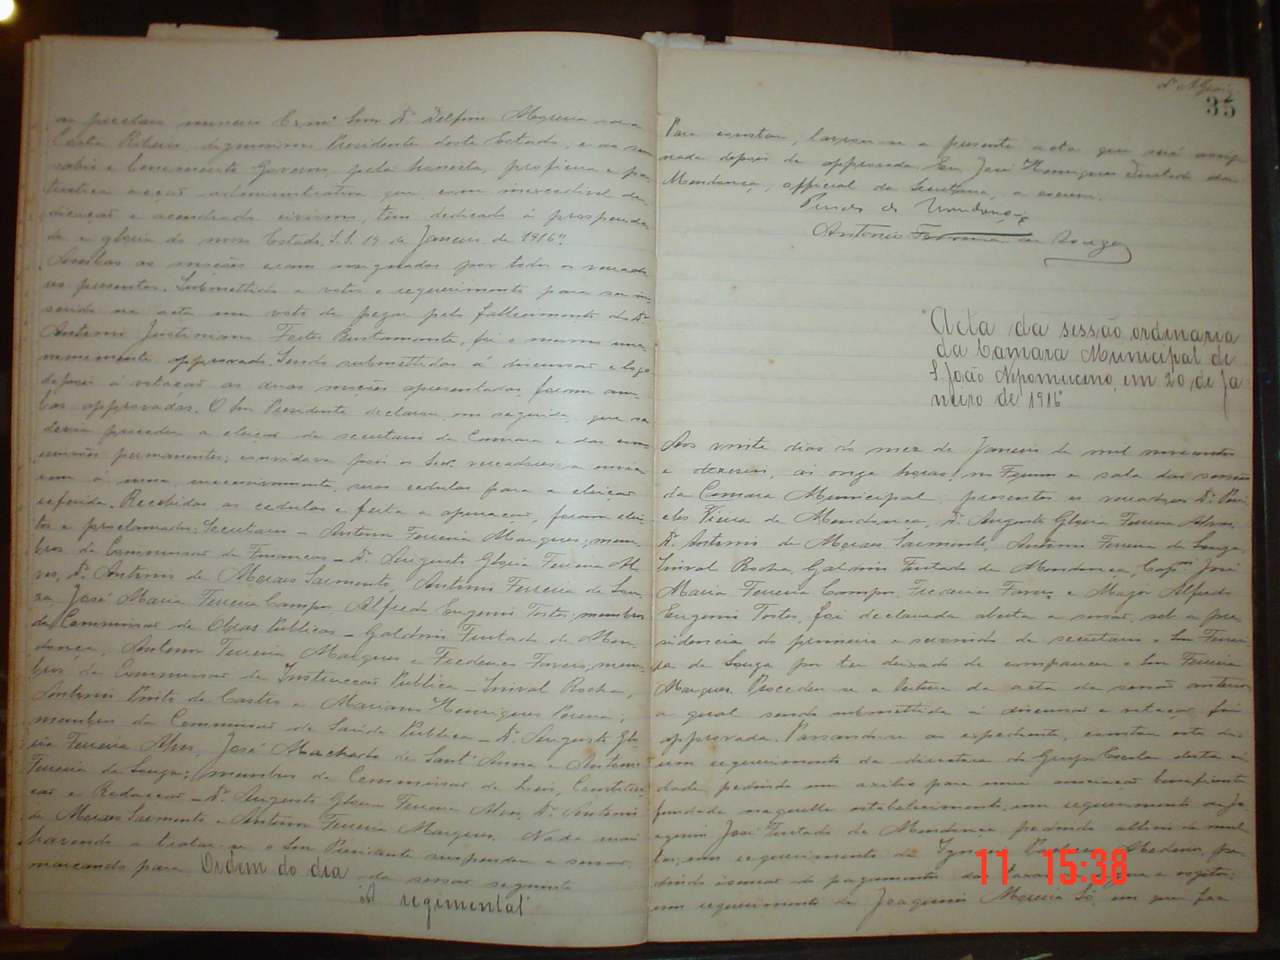 Exmo Snr Dr Delfim Moreira da
Costa Ribeiro, dignissimo Presidente deste Estado, e ao seu
sabio e benemerito Governo, pela honesta, proficua e pa
triotica acção administrativa que com inexcedivel de
dicação e acendrado civismo, tem dedicado á prosperida
de e gloria do nosso Estado. S.S. 19 de Janeiro de 1916".
Ambas as moções eram assignadas por todos os vereado
res presentes. Submettido a votos o requerimento para ser in
serido na acta um voto de pezar pelo fallecimento do Dr
Antonio Justiniano Fortes Bustamante, foi o mesmo una
nimemente approvado. Sendo submettidas á discussão e logo
depois á votação as duas moções apresentadas, foram am
bas approvadas. O Snr Presidente declarou em seguida que se
devia proceder a eleição de secretario da Camara e das com
missões permanentes; convidava pois os Snrs. vereadores a envia
rem á mesa, successivamente, suas cedulas para a eleição
referida. Recebidas as cedulas e feita a apuração, foram elei
tos e proclamados: Secretario – Antonio Ferreira Marques; mem
bros da Commissão de Finanças – Dr. Augusto Gloria Ferreira Al
ves, Dr. Antonio de Moraes Sarmento, Antonio Ferreira de Sou
za, José Maria Ferreira Campos, Alfredo Eugenio Fortes; membros
da Commissão de Obras Publicas – Galdino Furtado de Men
donça, Antonio Ferreira Marques e Frederico Favero; mem
bros da Commissão de Instrucção Publica – Sinval Rocha,
Antonio Pinto de Castro e Mariano Henriques Pereira;
membros da Commissão de Saúde Publica – Dr. Augusto Glo
ria Ferreira Alves, José Machado de Sant'Anna e Antonio
Ferreira de Souza; membros da Commissão de Leis, Constitui
ção e Redacção – Dr. Augusto Gloria Ferreira Alves, Dr. Antonio
de Moraes Sarmento e Antonio Ferreira Marques. Nada mais
havendo a tratar-se o Snr Presidente suspendeu a sessão,
marcando para Ordem do dia da sessão seguinte
"A regimental"
35
Para constar, lavrou-se a presente acta que será assig
nada depois de approvada. Eu, José Henriques Furtado de
Mendonça, official da Secretaria, a escrevi.
de Mendonça
Antonio Ferreira de Souza
Acta da sessão ordinaria
da Camara Municipal de
S. João Nepomuceno, em 20 de Ja
neiro de 1916
Aos vinte dias do mez de Janeiro de mil novecentos
e dezeseis, ás onze horas, no Forum e sala das sessões
da Camara Municipal, presentes os vereadores Dr. Peri
cles Vieira de Mendonça, Dr. Augusto Gloria Ferreira Alves,
Dr. Antonio de Moraes Sarmento, Antonio Ferreira de Souza,
Sinval Rocha, Galdino Furtado de Mendonça, Capm José
Maria Ferreira Campos, Frederico Favero e Major Alfredo
Eugenio Fortes, foi declarada aberta a sessão, sob a pre
sidencia do primeiro e servindo de secretario o Snr Ferrei
ra de Souza por ter deixado de comparecer o Snr Ferreira
Marques. Procedeu-se a leitura da acta da sessão anterior
a qual sendo submettida á discussão e votação foi
approvada. Passando-se ao expediente, constou este de:
um requerimento da directora do Grupo Escolar desta ci
dade pedindo um auxilio para uma associação beneficente
fundada naquelle estabelecimento; um requerimento de
José Furtado de Mendonça pedindo allivio de mul
tas; um requerimento de pe
dindo isenção de pagamento das taxas de agua e esgoto;
um requerimento de Joaquim Moreira Só, em que faz
11 15:38